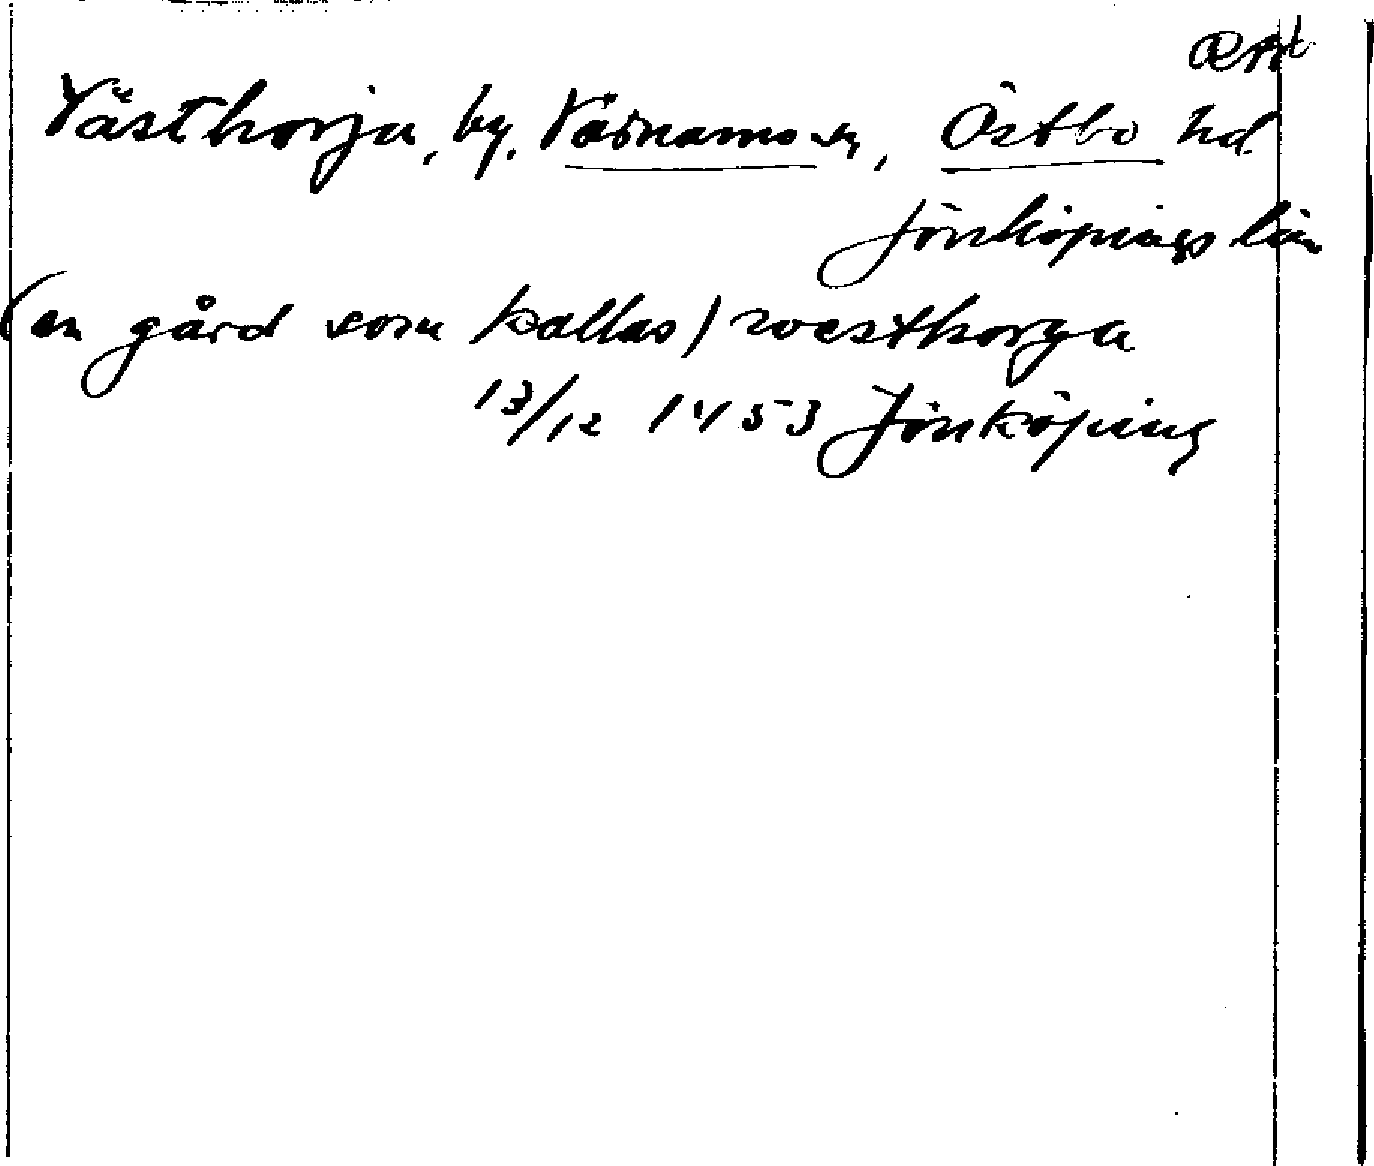 Västhorja, by, Värnamo sn, Östbo hd
Jönköpings län
(en gård som kallas) westhorga
13/12 1453 Jönköping